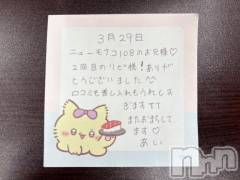 3月29日
ニューモナコ108のお兄様♡
2回目のリピ様!ありが
とうございました^^
口コミも差し入れもうれしす
ぎますTT
またおまちして
ます♡
あい